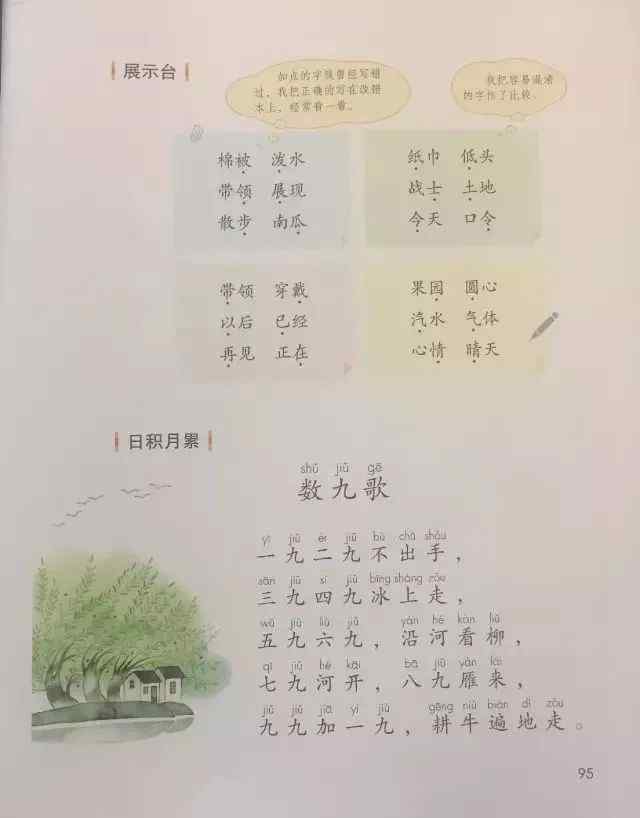 展示台
加点的字我曾经写错
过，我把正确的写在改错
本上，经常看一看。
我把容易混淆
的字作了比较。
棉被 泼水
带领 展现
散步 南瓜
纸巾 低头
战士 土地
今天 口令
带领 穿戴
以后 已经
再见 正在
果园 圆心
汽水 气体
心情 晴天
日积月累
shǔ jiǔ gē
数九歌
yī jiǔ èr jiǔ bù chū shǒu
一九二九不出手，
sān jiǔ sì jiǔ bīng shàng zǒu
三九四九冰上走，
wǔ jiǔ liù jiǔ yán hé kàn liǔ
五九六九，沿河看柳，
qī jiǔ hé kāi bā jiǔ yàn lái
七九河开，八九雁来，
jiǔ jiǔ jiā yī jiǔ gēng niú biàn dì zǒu
九九加一九，耕牛遍地走。
95